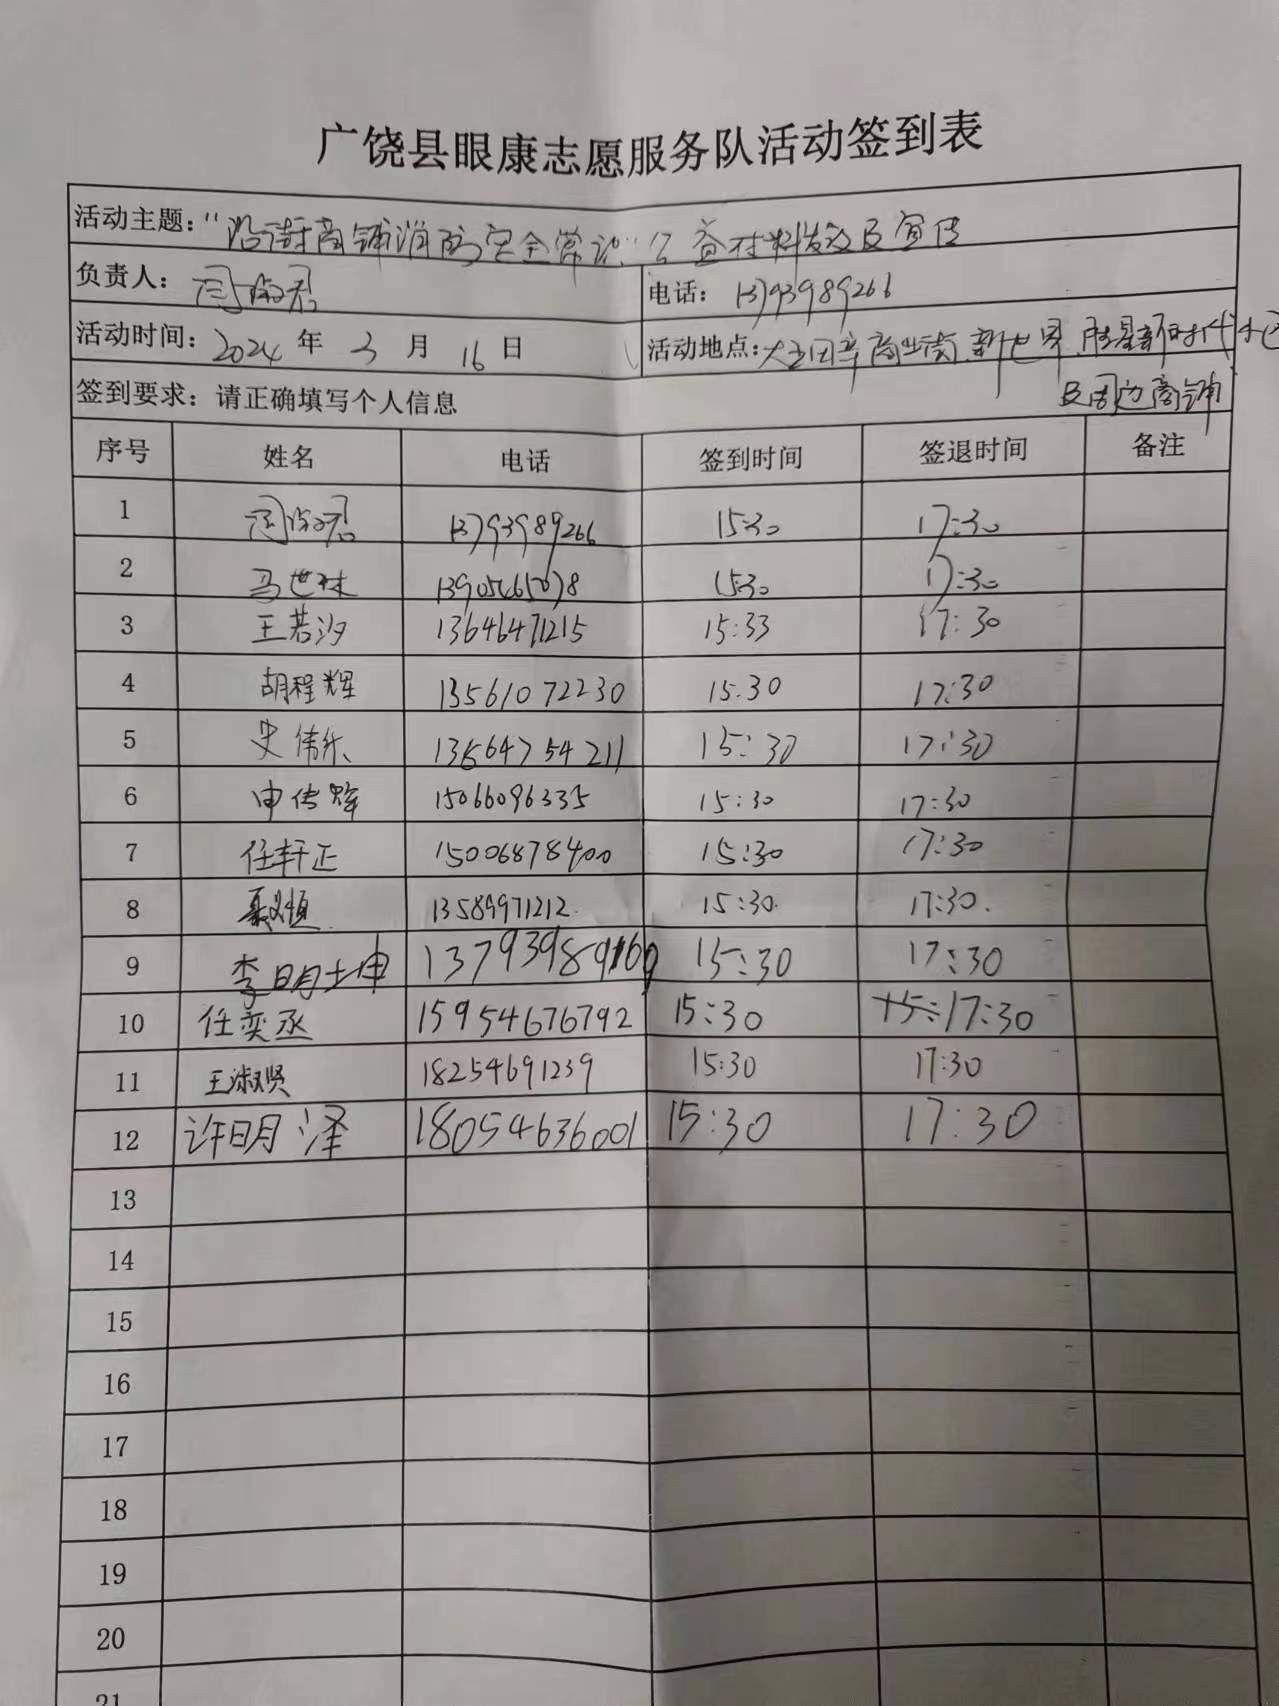 广饶县眼康志愿服务队活动签到表
活动主题：“沿街商铺消防安全常识”公益材料发放及宣传
负责人： 电话：13793989266
活动时间：2024年3月16日 活动地点： 商业街、新世界、
及周边商铺
签到要求：请正确填写个人信息
序号 姓名 电话 签到时间 签退时间 备注
1 13793989266 15:30 17:30
2 马世林 15:30 17:30
3 王若汐 13646471215 15:33 17:30
4 胡程辉 13561072230 15:30 17:30
5 史伟乐 15:30 17:30
6 申传辉 15066096335 15:30 17:30
7 任轩正 15006878400 15:30 17:30
8 13589971212 15:30 17:30
9 李明坤 15:30 17:30
10 任奕丞 15954676792 15:30 17:30
11 王淑贤 18254691239 15:30 17:30
12 许明泽 18054636001 15:30 17:30
13
14
15
16
17
18
19
20
21